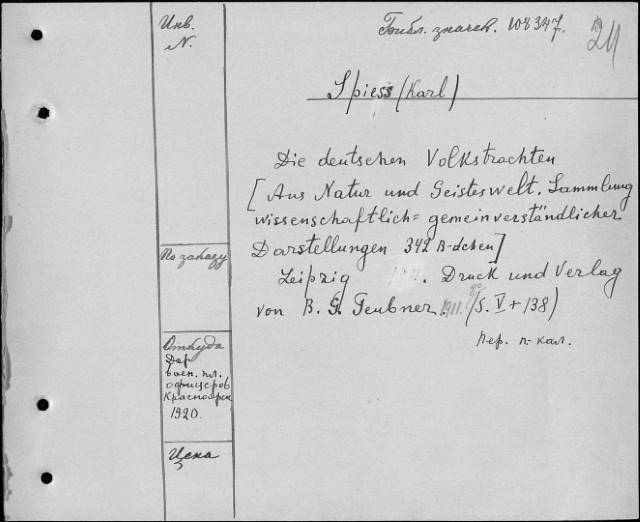 Инв.
N.
Библ. значек. 108347.
Spiess (Karl)
Die deutschen Volkstrachten
[Aus Natur und Geisteswelt. Sammlung
wissenschaftlich= gemeinverständlicher
Darstellungen 342 B-dchen]
Leipzig 1911. Druck und Verlag
von B. G. Teubner. 1911. 8° (S. V + 138)
Пер. п.-кал.
По заказу
Откуда
Дар
воен. пл.
офицеров
Красноярск
1920.
Цена